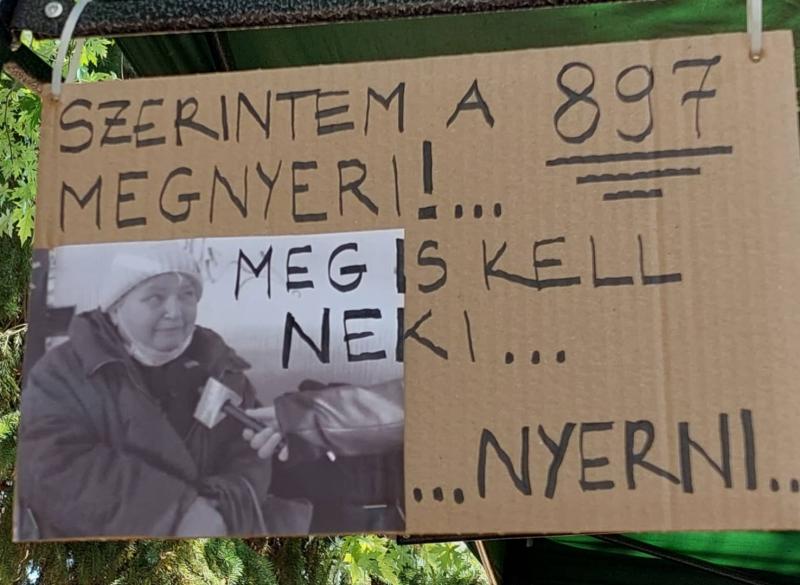 SZERINTEM A 897
MEGNYERI!...
MEG IS KELL
NEKI...
...NYERNI...